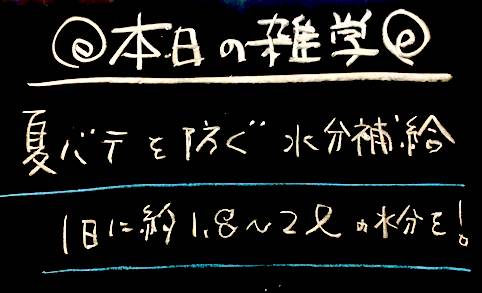 @本日の雑学@
夏バテを防ぐ水分補給
1日に約1.8～2ℓの水分を!